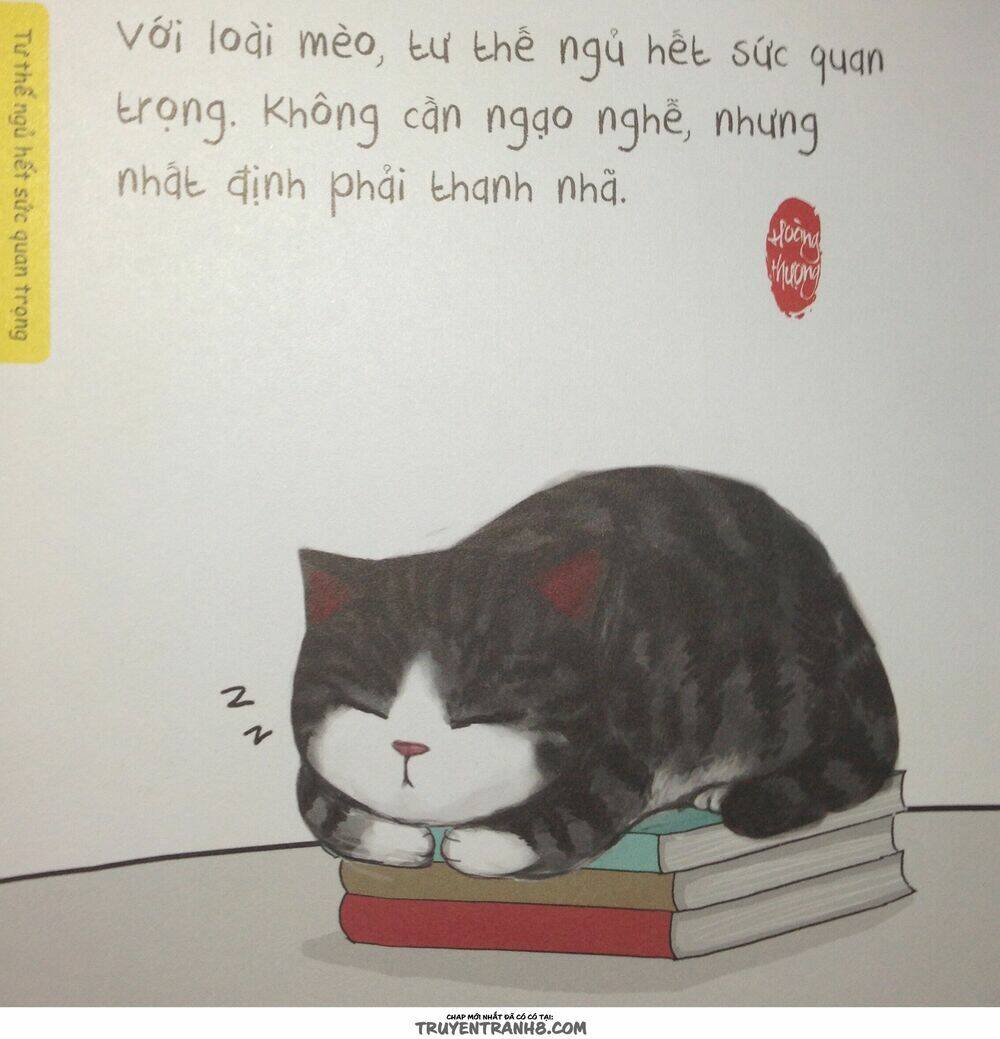 Tư thế ngủ hết sức quan trọng
Với loài mèo, tư thế ngủ hết sức quan
trọng. Không cần ngạo nghễ, nhưng
nhất định phải thanh nhã.
Hoàng
thượng
z
z
CHAP MỚI NHẤT ĐÃ CÓ CÓ TẠI:
TRUYENTRANH8.COM